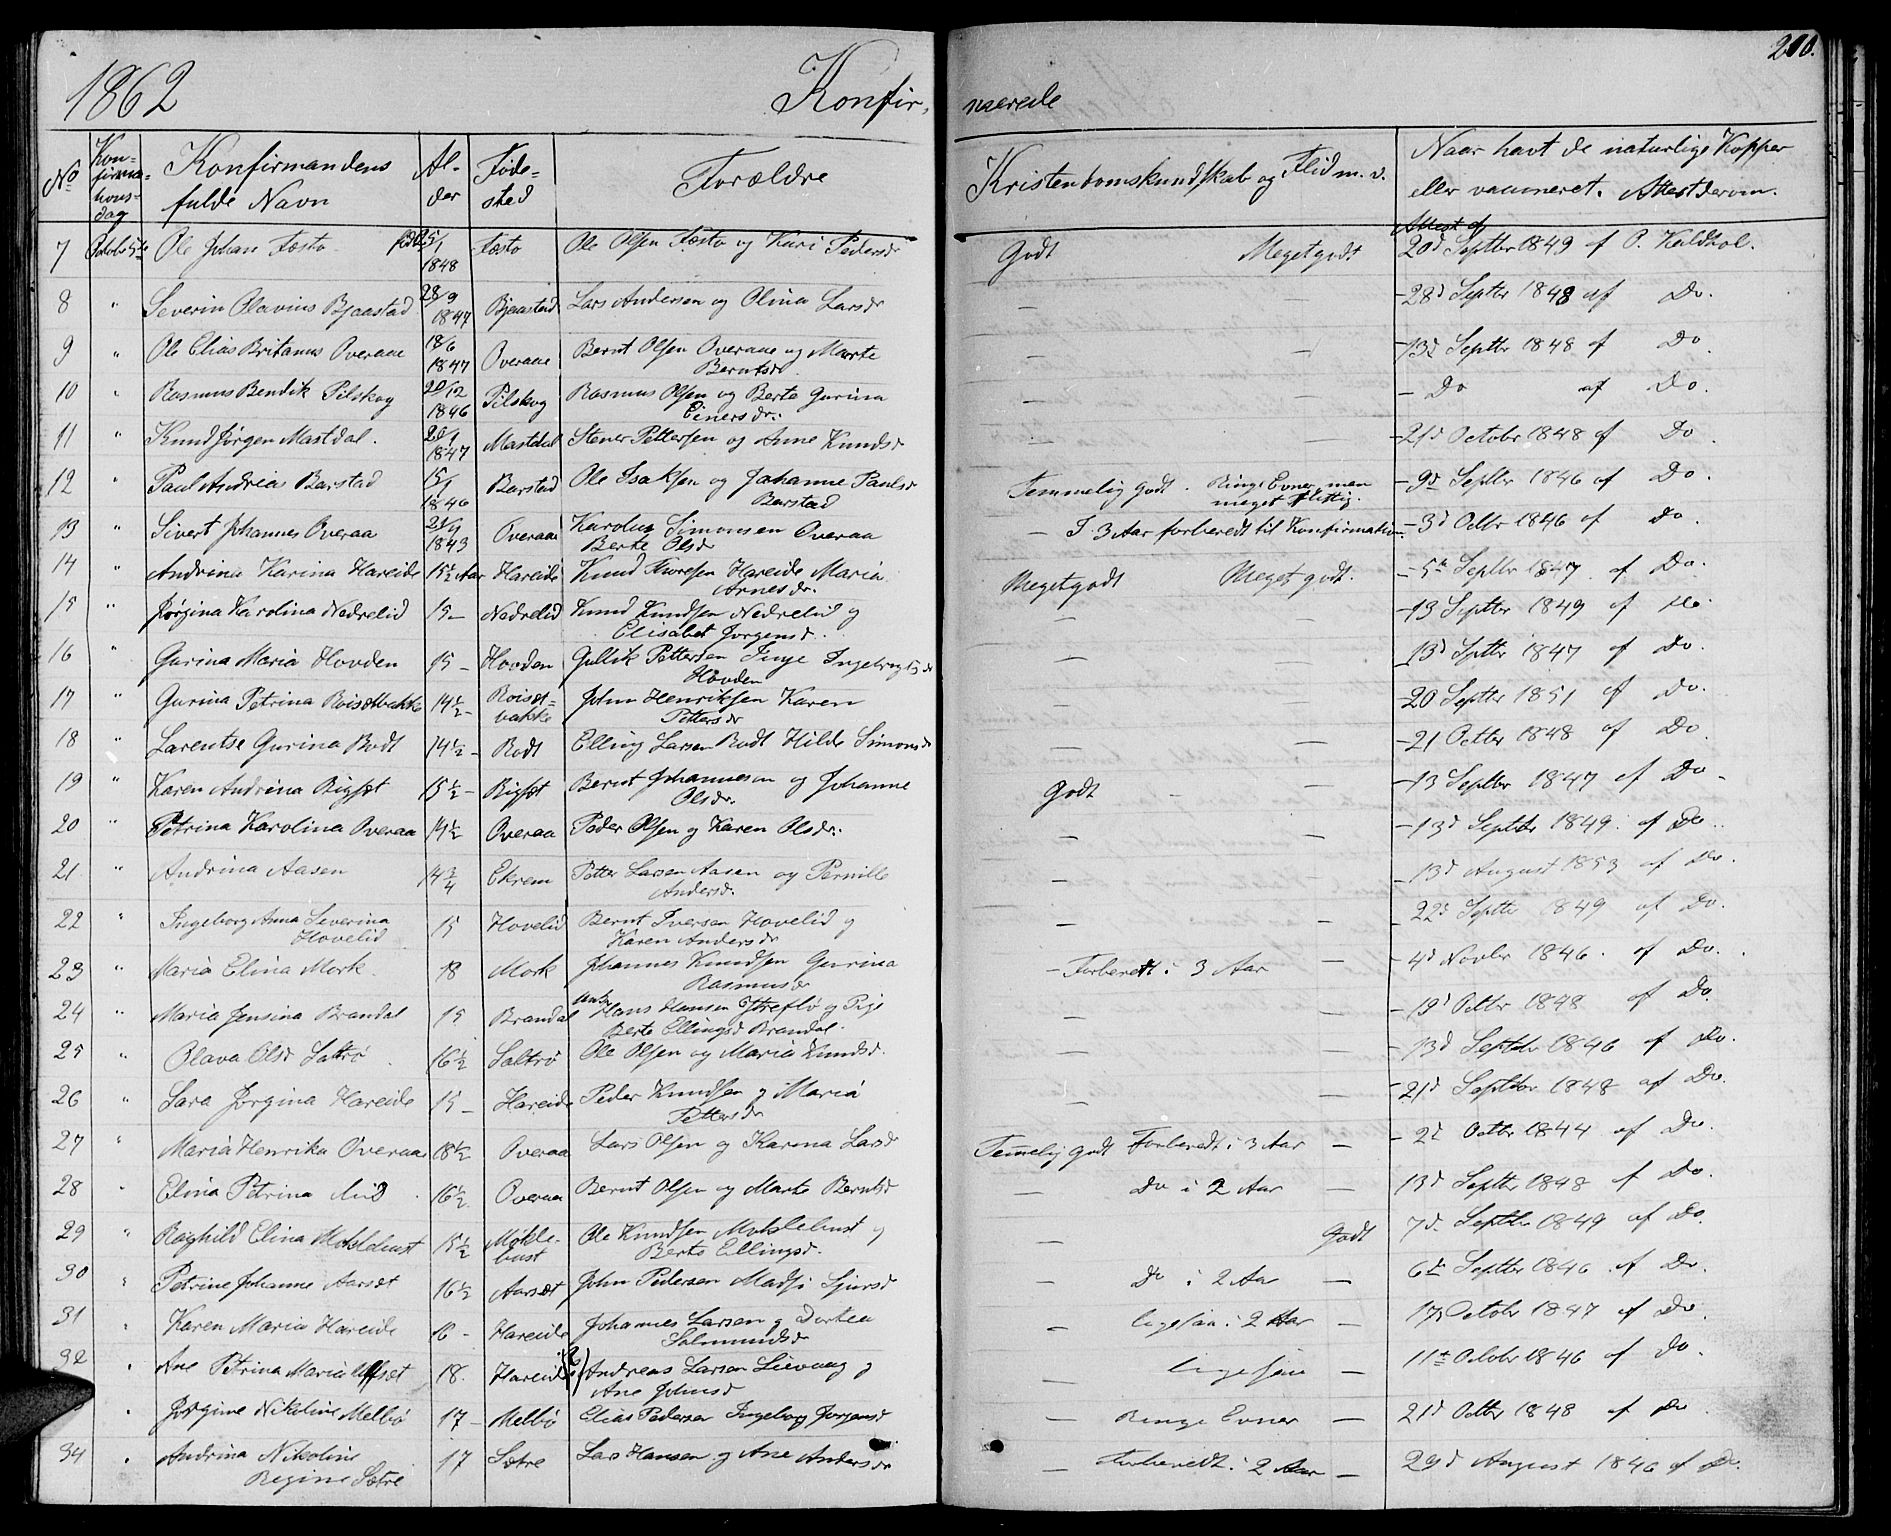 1862 Konfir- merede 210.
No Konfirmationsdag Konfirmandens fulde Navn Alder Fødested Forældre Kristendomskundskab og Flid m. v. Naar havt de naturlige Kopper eller vaccineret. Attest derom.
Attest af
7 Octobr 5te Ole Johan Festø født 25/1 1848 Festø Ole Olsen Festø og Kari Pedersdr Godt Megetgodt 20d Septbr 1849 af P. Kaldhol.
8 " Severin Olavius Bjaastad 28/9 1847 Bjaastad Lars Andersen og Olina Larsdr — – 28d Septbr 1848 af Do.
9 " Ole Elias Britanus Overaae 18/6 1847 Overaae Bernt Olsen Overaae og Marte Berntsdr — — – 13d Septbr 1848 af Do
10 " Rasmus Bendik Pilskog 20/12 1846 Pilskog Rasmus Olsen og Berte Gurina Einersdr. — — – Do af Do.
11 " Knud Jørgen Mastdal. 20/1 1847 Mastdal Stener Pettersen og Anne Knudsdr — — – 21d Octobr 1848 af Do.
12 " Paul Andreas Barstad 15/1 1846 Barstad Ole Isaksen og Johanne Paulsdr Barstad Temmelig godt. Ringe Evner, men meget flittig. – 9d Septbr 1846 af Do.
13 " Sivert Johannes Overaa 21/11 1843 Overaa Karolus Simonsen Overaa Berte Olsdr — I 3 Aar forberedt til Konfirmation – 3d Octbr 1846 af Do.
14 " Andrina Karina Hareide 15½ Aar Hareide Knud Thoresen Hareide Maria Arnesdr. Megetgodt Meget godt. – 5te Septbr 1847. af Do.
15 " Jørgina Karolina Nedrelid 15 – Nedrelid Knud Knudsen Nedrelid og Elisabet Jorgensdr. — — – 13 Septbr 1849 af Do.
16 " Gurina Maria Hovden 15 – Hovden Gullik Pettersen Inge Ingebrigtsdr Hovden — — – 13d Septbr 1847 af Do.
17 " Gurina Petrina Roisætbakke 14½ – Roisætbakke John Henriksen Karen Pettersdr — — 20 Septbr 1851 af Do.
18 " Larentse Gurina Rodt 14½ – Rodt Elling Larsen Rodt Hilde Simonsdr — — – 21 Octbr 1848 af Do.
19 " Karen Andrina Rigsæt 15½ – Rigsæt Bernt Johannesen og Johanne Olsdr. Godt – — – 13 Septbr 1847 af Do –
20 " Petrina Karolina Overaa 14½ Overaa Peder Olsen og Karen Olsdr. — — – 13d Septbr 1849. af Do.
21 " Andrina Aasen 14¾ Ekrem Petter Larsen Aasen og Pernille Andersdr. — — – 13d August 1853 af Do.
22 " Ingeborg Anna Severina Hovelid 15 Hovelid Bernt Iversen Hovelid og Karen Andersdr — — – 22d Septbr 1849 af Do.
23 " Maria Elina Mork. 18 Mork Johannes Knudsen Gurina Rasmusdr – Forberedt i 3 Aar — – 4d Novbr 1846. af Do.
24 " Maria Jensina Brandal 15 Brandal Hans Hansen Ytreflø og Pige Berte Ellingsd Brandal. — — – 19d Octbr 1848 af Do
25 " Olava Olsdr Saltrø 16½ Saltrø Ole Olsen og Maria Knudsdr. — — – 13d Septbr 1846 af Do.
26 " Sara Jørgina Hareide 15 – Hareide Peder Knudsen og Maria Pettersdr — – 21d Septbr 1848 af Do.
27 " Maria Henrika Overaae 18½ Overaa Lars Olsen og Karina Larsdr Temmelig godt Forberedt i 3 Aar — – 2d Octbr 1844 af Do.
28 " Elina Petrina Lid 16½ Overaa Bernt Olsen og Marte Berntsdr — Do i 2 Aar — 13d Septbr 1848 af Do.
29 " Raghild Elina Moklebust 15½ Moklebust Ole Knudsen Moklebust og Berte Ellingsdr. — Godt 7d. Septbr 1849 af Do.
30 " Petrine Johanne Aarsæt 16½ Aarsæt John Pedersen Madsi Sjursdr — Do i 2 Aar — 6te Septbr 1846 af Do.
31 " Karen Maria Hareide 16 – Hareide Johannes Larsen og Dorthea Salmundsdr — ligesaa i 2 Aar — 17d Octobr 1847 af Do
32 " Ane Petrina Maria Ulfsæt 18. Hareide Andreas Larsen Lievaag og Ane Johnsdr — ligesaa — 11te Octobr 1846 af Do.
" Jørgine Nikoline Melbø 17 – Melbø Elias Pedersen Ingeborg Jorgensdr — Ringe Evner — – 21d Octbr 1848 af Do
34 " Andrina Nikoline Regine Sætre 17 Sætre Lars Hansen og Ane Andersdr — Forberedt i 2 Aar — 29d August 1846 af Do.